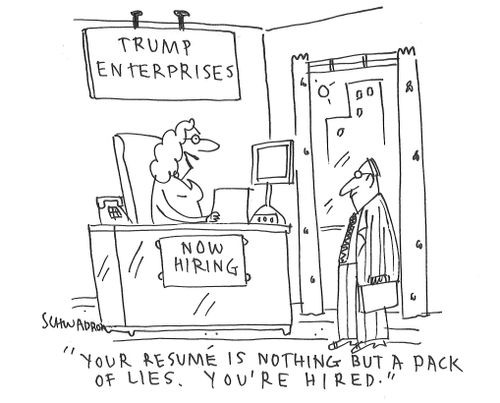 TRUMP
ENTERPRISES
NOW
HIRING
SCHWADRON
"YOUR RESUMÉ IS NOTHING BUT A PACK
OF LIES. YOU'RE HIRED."